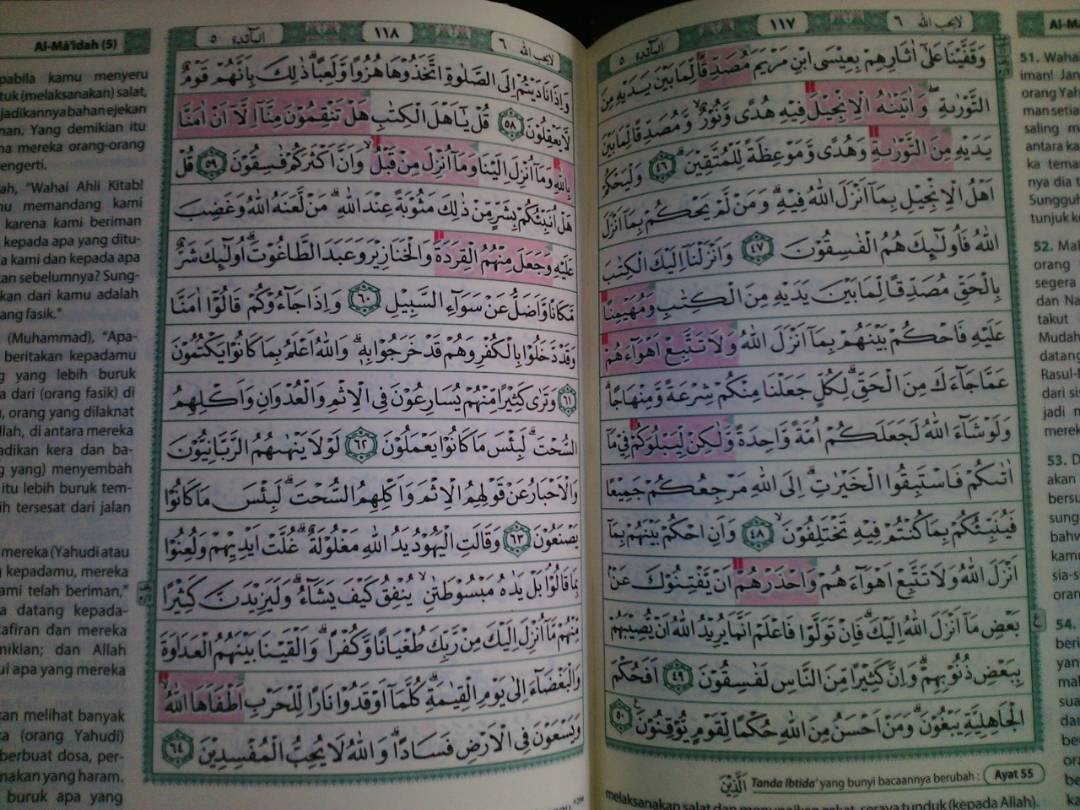 Al-Mā'idah (5)
المائدة ٥
١١٨
لايحب الله ٦
المائدة ٥
١١٧
لايحب الله ٦
وَقَفَّيْنَا عَلٰٓى اٰثَارِهِمْ بِعِيْسَى ابْنِ مَرْيَمَ مُصَدِّقًا لِّمَا بَيْنَ يَدَيْهِ مِنَ
التَّوْرٰىةِ ۖوَاٰتَيْنٰهُ الْاِنْجِيْلَ فِيْهِ هُدًى وَّنُوْرٌۙ وَّمُصَدِّقًا لِّمَا بَيْنَ
يَدَيْهِ مِنَ التَّوْرٰىةِ وَهُدًى وَّمَوْعِظَةً لِّلْمُتَّقِيْنَۗ ٤٦ وَلْيَحْكُمْ
اَهْلُ الْاِنْجِيْلِ بِمَآ اَنْزَلَ اللّٰهُ فِيْهِۗ وَمَنْ لَّمْ يَحْكُمْ بِمَآ اَنْزَلَ
اللّٰهُ فَاُولٰۤىِٕكَ هُمُ الْفٰسِقُوْنَ ٤٧ وَاَنْزَلْنَآ اِلَيْكَ الْكِتٰبَ
بِالْحَقِّ مُصَدِّقًا لِّمَا بَيْنَ يَدَيْهِ مِنَ الْكِتٰبِ وَمُهَيْمِنًا
عَلَيْهِ فَاحْكُمْ بَيْنَهُمْ بِمَآ اَنْزَلَ اللّٰهُ وَلَا تَتَّبِعْ اَهْوَاۤءَهُمْ
عَمَّا جَاۤءَكَ مِنَ الْحَقِّۗ لِكُلٍّ جَعَلْنَا مِنْكُمْ شِرْعَةً وَّمِنْهَاجًاۗ
وَلَوْ شَاۤءَ اللّٰهُ لَجَعَلَكُمْ اُمَّةً وَّاحِدَةً وَّلٰكِنْ لِّيَبْلُوَكُمْ فِيْ مَآ
اٰتٰىكُمْ فَاسْتَبِقُوا الْخَيْرٰتِۗ اِلَى اللّٰهِ مَرْجِعُكُمْ جَمِيْعًا
فَيُنَبِّئُكُمْ بِمَا كُنْتُمْ فِيْهِ تَخْتَلِفُوْنَۙ ٤٨ وَاَنِ احْكُمْ بَيْنَهُمْ بِمَآ
اَنْزَلَ اللّٰهُ وَلَا تَتَّبِعْ اَهْوَاۤءَهُمْ وَاحْذَرْهُمْ اَنْ يَّفْتِنُوْكَ عَنْۢ
بَعْضِ مَآ اَنْزَلَ اللّٰهُ اِلَيْكَۗ فَاِنْ تَوَلَّوْا فَاعْلَمْ اَنَّمَا يُرِيْدُ اللّٰهُ اَنْ يُّصِيْبَهُمْ
بِبَعْضِ ذُنُوْبِهِمْۗ وَاِنَّ كَثِيْرًا مِّنَ النَّاسِ لَفٰسِقُوْنَ ٤٩ اَفَحُكْمَ
الْجَاهِلِيَّةِ يَبْغُوْنَۗ وَمَنْ اَحْسَنُ مِنَ اللّٰهِ حُكْمًا لِّقَوْمٍ يُّوْقِنُوْنَ ٥٠
الَّذِيْنَ Tanda Ibtida' yang bunyi bacaannya berubah : Ayat 55
وَاِذَا نَادَيْتُمْ اِلَى الصَّلٰوةِ اتَّخَذُوْهَا هُزُوًا وَّلَعِبًاۗ ذٰلِكَ بِاَنَّهُمْ قَوْمٌ
لَّا يَعْقِلُوْنَ ٥٨ قُلْ يٰٓاَهْلَ الْكِتٰبِ هَلْ تَنْقِمُوْنَ مِنَّآ اِلَّآ اَنْ اٰمَنَّا
بِاللّٰهِ وَمَآ اُنْزِلَ اِلَيْنَا وَمَآ اُنْزِلَ مِنْ قَبْلُۙ وَاَنَّ اَكْثَرَكُمْ فٰسِقُوْنَ ٥٩ قُلْ
هَلْ اُنَبِّئُكُمْ بِشَرٍّ مِّنْ ذٰلِكَ مَثُوْبَةً عِنْدَ اللّٰهِۗ مَنْ لَّعَنَهُ اللّٰهُ وَغَضِبَ
عَلَيْهِ وَجَعَلَ مِنْهُمُ الْقِرَدَةَ وَالْخَنَازِيْرَ وَعَبَدَ الطَّاغُوْتَۗ اُولٰۤىِٕكَ شَرٌّ
مَّكَانًا وَّاَضَلُّ عَنْ سَوَاۤءِ السَّبِيْلِ ٦٠ وَاِذَا جَاۤءُوْكُمْ قَالُوْٓا اٰمَنَّا
وَقَدْ دَّخَلُوْا بِالْكُفْرِ وَهُمْ قَدْ خَرَجُوْا بِهٖۗ وَاللّٰهُ اَعْلَمُ بِمَا كَانُوْا يَكْتُمُوْنَ
٦١ وَتَرٰى كَثِيْرًا مِّنْهُمْ يُسَارِعُوْنَ فِى الْاِثْمِ وَالْعُدْوَانِ وَاَكْلِهِمُ
السُّحْتَۗ لَبِئْسَ مَا كَانُوْا يَعْمَلُوْنَ ٦٢ لَوْلَا يَنْهٰىهُمُ الرَّبَّانِيُّوْنَ
وَالْاَحْبَارُ عَنْ قَوْلِهِمُ الْاِثْمَ وَاَكْلِهِمُ السُّحْتَۗ لَبِئْسَ مَا كَانُوْا
يَصْنَعُوْنَ ٦٣ وَقَالَتِ الْيَهُوْدُ يَدُ اللّٰهِ مَغْلُوْلَةٌ ۗغُلَّتْ اَيْدِيْهِمْ وَلُعِنُوْا
بِمَا قَالُوْاۘ بَلْ يَدٰهُ مَبْسُوْطَتٰنِۙ يُنْفِقُ كَيْفَ يَشَاۤءُۗ وَلَيَزِيْدَنَّ كَثِيْرًا
مِّنْهُمْ مَّآ اُنْزِلَ اِلَيْكَ مِنْ رَّبِّكَ طُغْيَانًا وَّكُفْرًاۗ وَاَلْقَيْنَا بَيْنَهُمُ الْعَدَاوَةَ
وَالْبَغْضَاۤءَ اِلٰى يَوْمِ الْقِيٰمَةِۗ كُلَّمَآ اَوْقَدُوْا نَارًا لِّلْحَرْبِ اَطْفَاَهَا اللّٰهُ
وَيَسْعَوْنَ فِى الْاَرْضِ فَسَادًاۗ وَاللّٰهُ لَا يُحِبُّ الْمُفْسِدِيْنَ ٦٤
pabila kamu menyeru
tuk (melaksanakan) salat,
jadikannya bahan ejekan
nan. Yang demikian itu
na mereka orang-orang
engerti.
ah, "Wahai Ahli Kitab!
mu memandang kami
karena kami beriman
kepada apa yang ditu-
a kami dan kepada apa
kan sebelumnya? Sung-
kan dari kamu adalah
ang fasik."
(Muhammad), "Apa-
beritakan kepadamu
g yang lebih buruk
a dari (orang fasik) di
, orang yang dilaknat
llah, di antara mereka
adikan kera dan ba-
g yang) menyembah
itu lebih buruk tem-
ih tersesat dari jalan
mereka (Yahudi atau
g kepadamu, mereka
ami telah beriman,"
a datang kepada-
afiran dan mereka
mikian; dan Allah
ui apa yang mereka
kan melihat banyak
ka (orang Yahudi)
berbuat dosa, per-
nakan yang haram.
buruk apa yang
51. Waha
iman! Jan
orang Yah
man setia
saling m
antara ka
ka tema
nya dia t
Sungguh
tunjuk k
52. Mak
orang
segera
dan Na
takut
Mudah
datang
Rasul-
dari sis
jadi m
merek
53. D
akan
bersu
sung
bahw
kamu
sia-s
oran
54.
beri